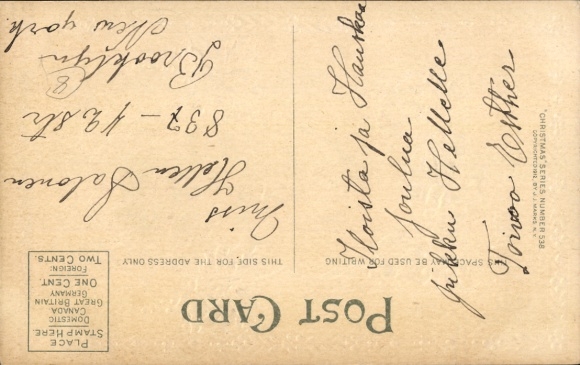 POST CARD
PLACE
STAMP HERE.
DOMESTIC
CANADA
GREAT BRITAIN
GERMANY
ONE CENT.
FOREIGN:
TWO CENTS.
THIS SPACE MAY BE USED FOR WRITING
THIS SIDE FOR THE ADDRESS ONLY
Iloista ja Hauskaa
Joulua
Hellelle
Toivoo Esther
"CHRISTMAS" SERIES NUMBER 538
COPYRIGHTED 1912, BY P. J. MARKS, N.Y.
Miss
Hellen Salonen
837 - 42 Str
Brooklyn
8
New York